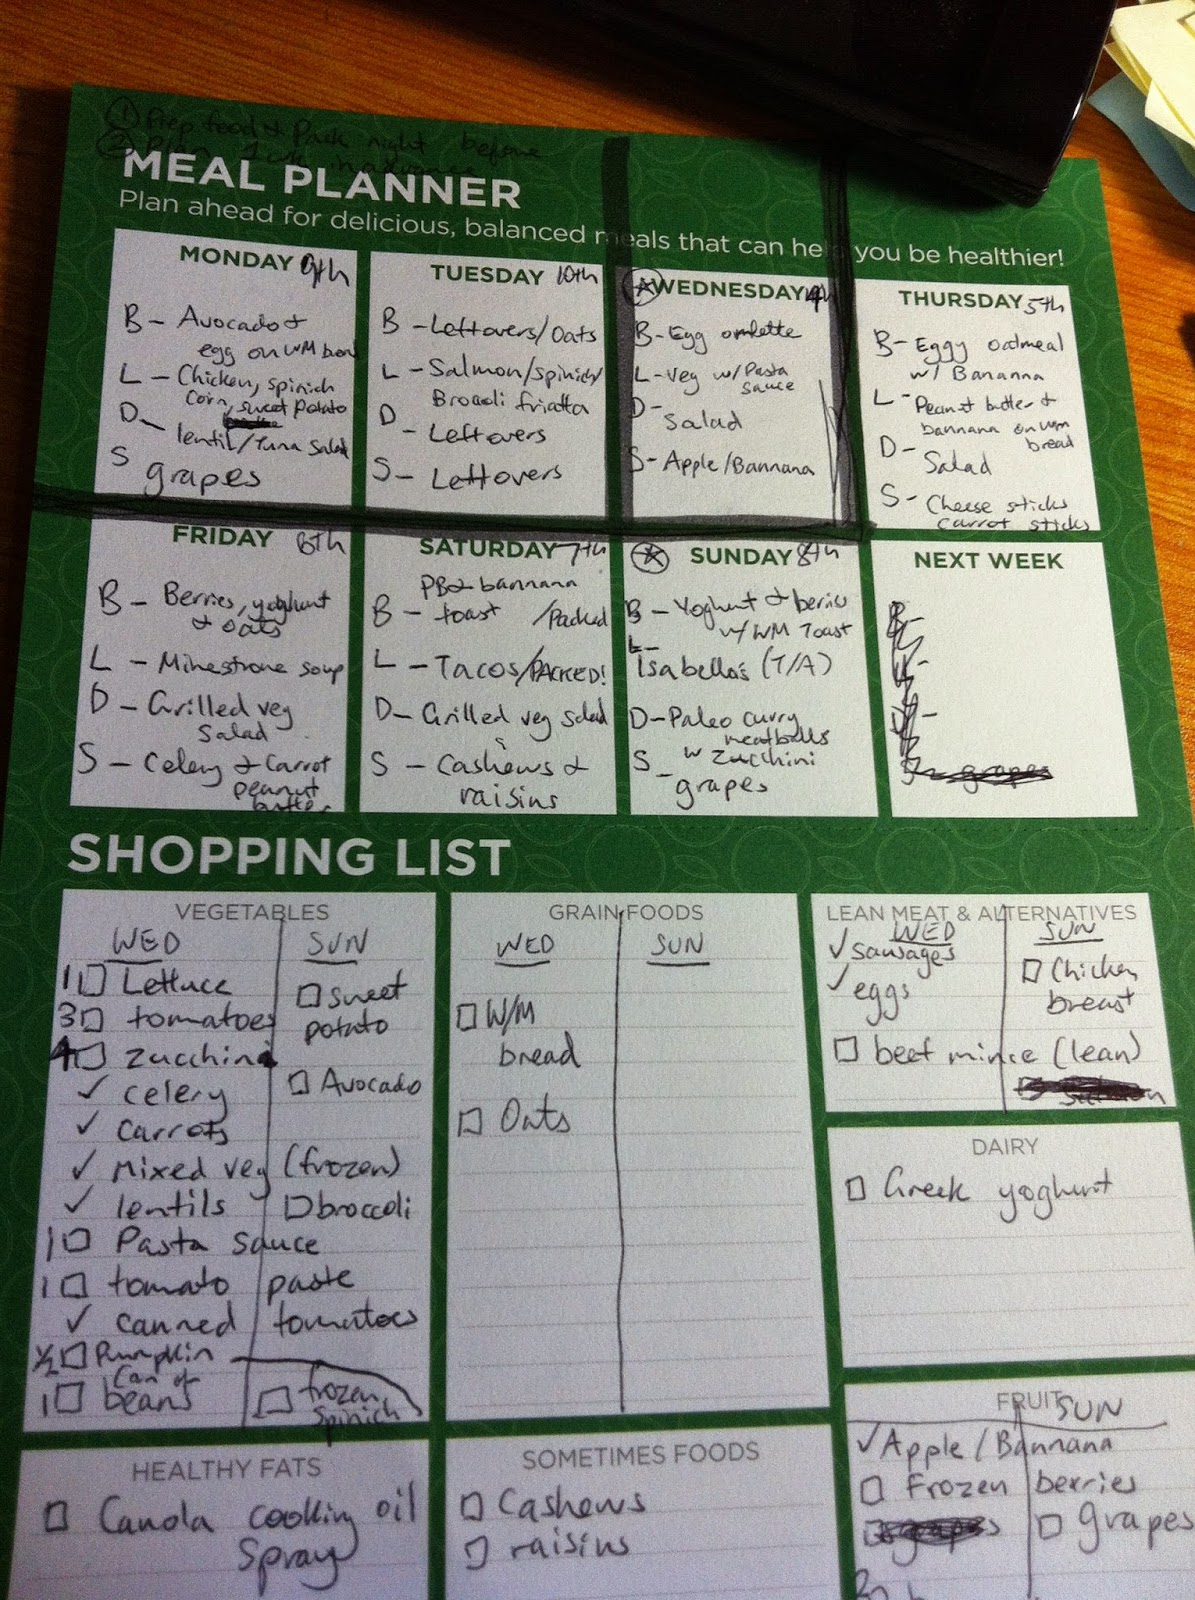 ① Prep food & Pack night before
② Plan 1 wk in advance
MEAL PLANNER
Plan ahead for delicious, balanced meals that can help you be healthier!
MONDAY 9th
B - Avocado &
egg on WM
L - Chicken, spinich
Corn, sweet potato
D - lentil/Tuna Salad
S grapes
TUESDAY 10th
B - Leftovers/Oats
L - Salmon/spinich/
Brocoli friatta
D - Leftovers
S - Leftovers
WEDNESDAY 4th
B - Egg omlette
L - veg w/ Pasta
sauce
D - Salad
S - Apple/Bannana
THURSDAY 5th
B - Eggy oatmeal
w/ Bananna
L - Peanut butter &
bannana on wm
bread
D - Salad
S - Cheese sticks
carrot sticks
FRIDAY 6th
B - Berries, yoghurt
& oats
L - Minestrone soup
D - Grilled veg
Salad
S - Celery & Carrot
peanut
butter
SATURDAY 7th
PB & bannana
B - toast /Packed
L - Tacos/PACKED!
D - Grilled veg salad
S - Cashews &
raisins
SUNDAY 8th
B - Yoghurt & berries
w/ WM Toast
L -
Isabella's (T/A)
D - Paleo curry
meatballs
w zucchini
S - grapes
NEXT WEEK
B -
L -
D -
S - grapes
SHOPPING LIST
VEGETABLES
WED SUN
1 □ Lettuce
3 □ tomatoes
4 □ zucchini
✓ celery
✓ carrots
✓ mixed veg (frozen)
✓ lentils
1 □ Pasta sauce
1 □ tomato paste
✓ canned tomatoes
1/2 □ Pumpkin
1 □ Can of
beans
□ sweet
potato
□ Avocado
□ broccoli
□ frozen
spinich
GRAIN FOODS
WED SUN
□ W/M
bread
□ Oats
LEAN MEAT & ALTERNATIVES
WED SUN
✓ sausages
✓ eggs
□ beef mince (lean)
□ Chicken
breast
DAIRY
□ Greek yoghurt
HEALTHY FATS
□ Canola cooking oil
Spray
SOMETIMES FOODS
□ Cashews
□ raisins
FRUIT SUN
✓ Apple / Bannana
□ Frozen berries
□ grapes
□ grapes